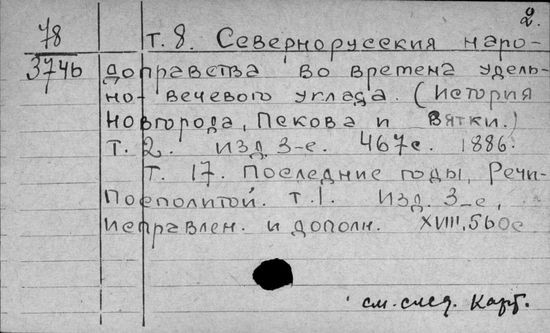 2.
78
3746
Т. 8. Севернорусския наро-
доправства во времена удель-
но-вечевого уклада. (История
Новгорода, Пскова и Вятки.)
Т. 2. Изд. 3-е. 467с. 1886.
Т. 17. Последние годы, Речи-
Посполитой. Т. I. Изд. 3-е,
Исправлен. и дополн. XVIII, 560с
см. след. карт.